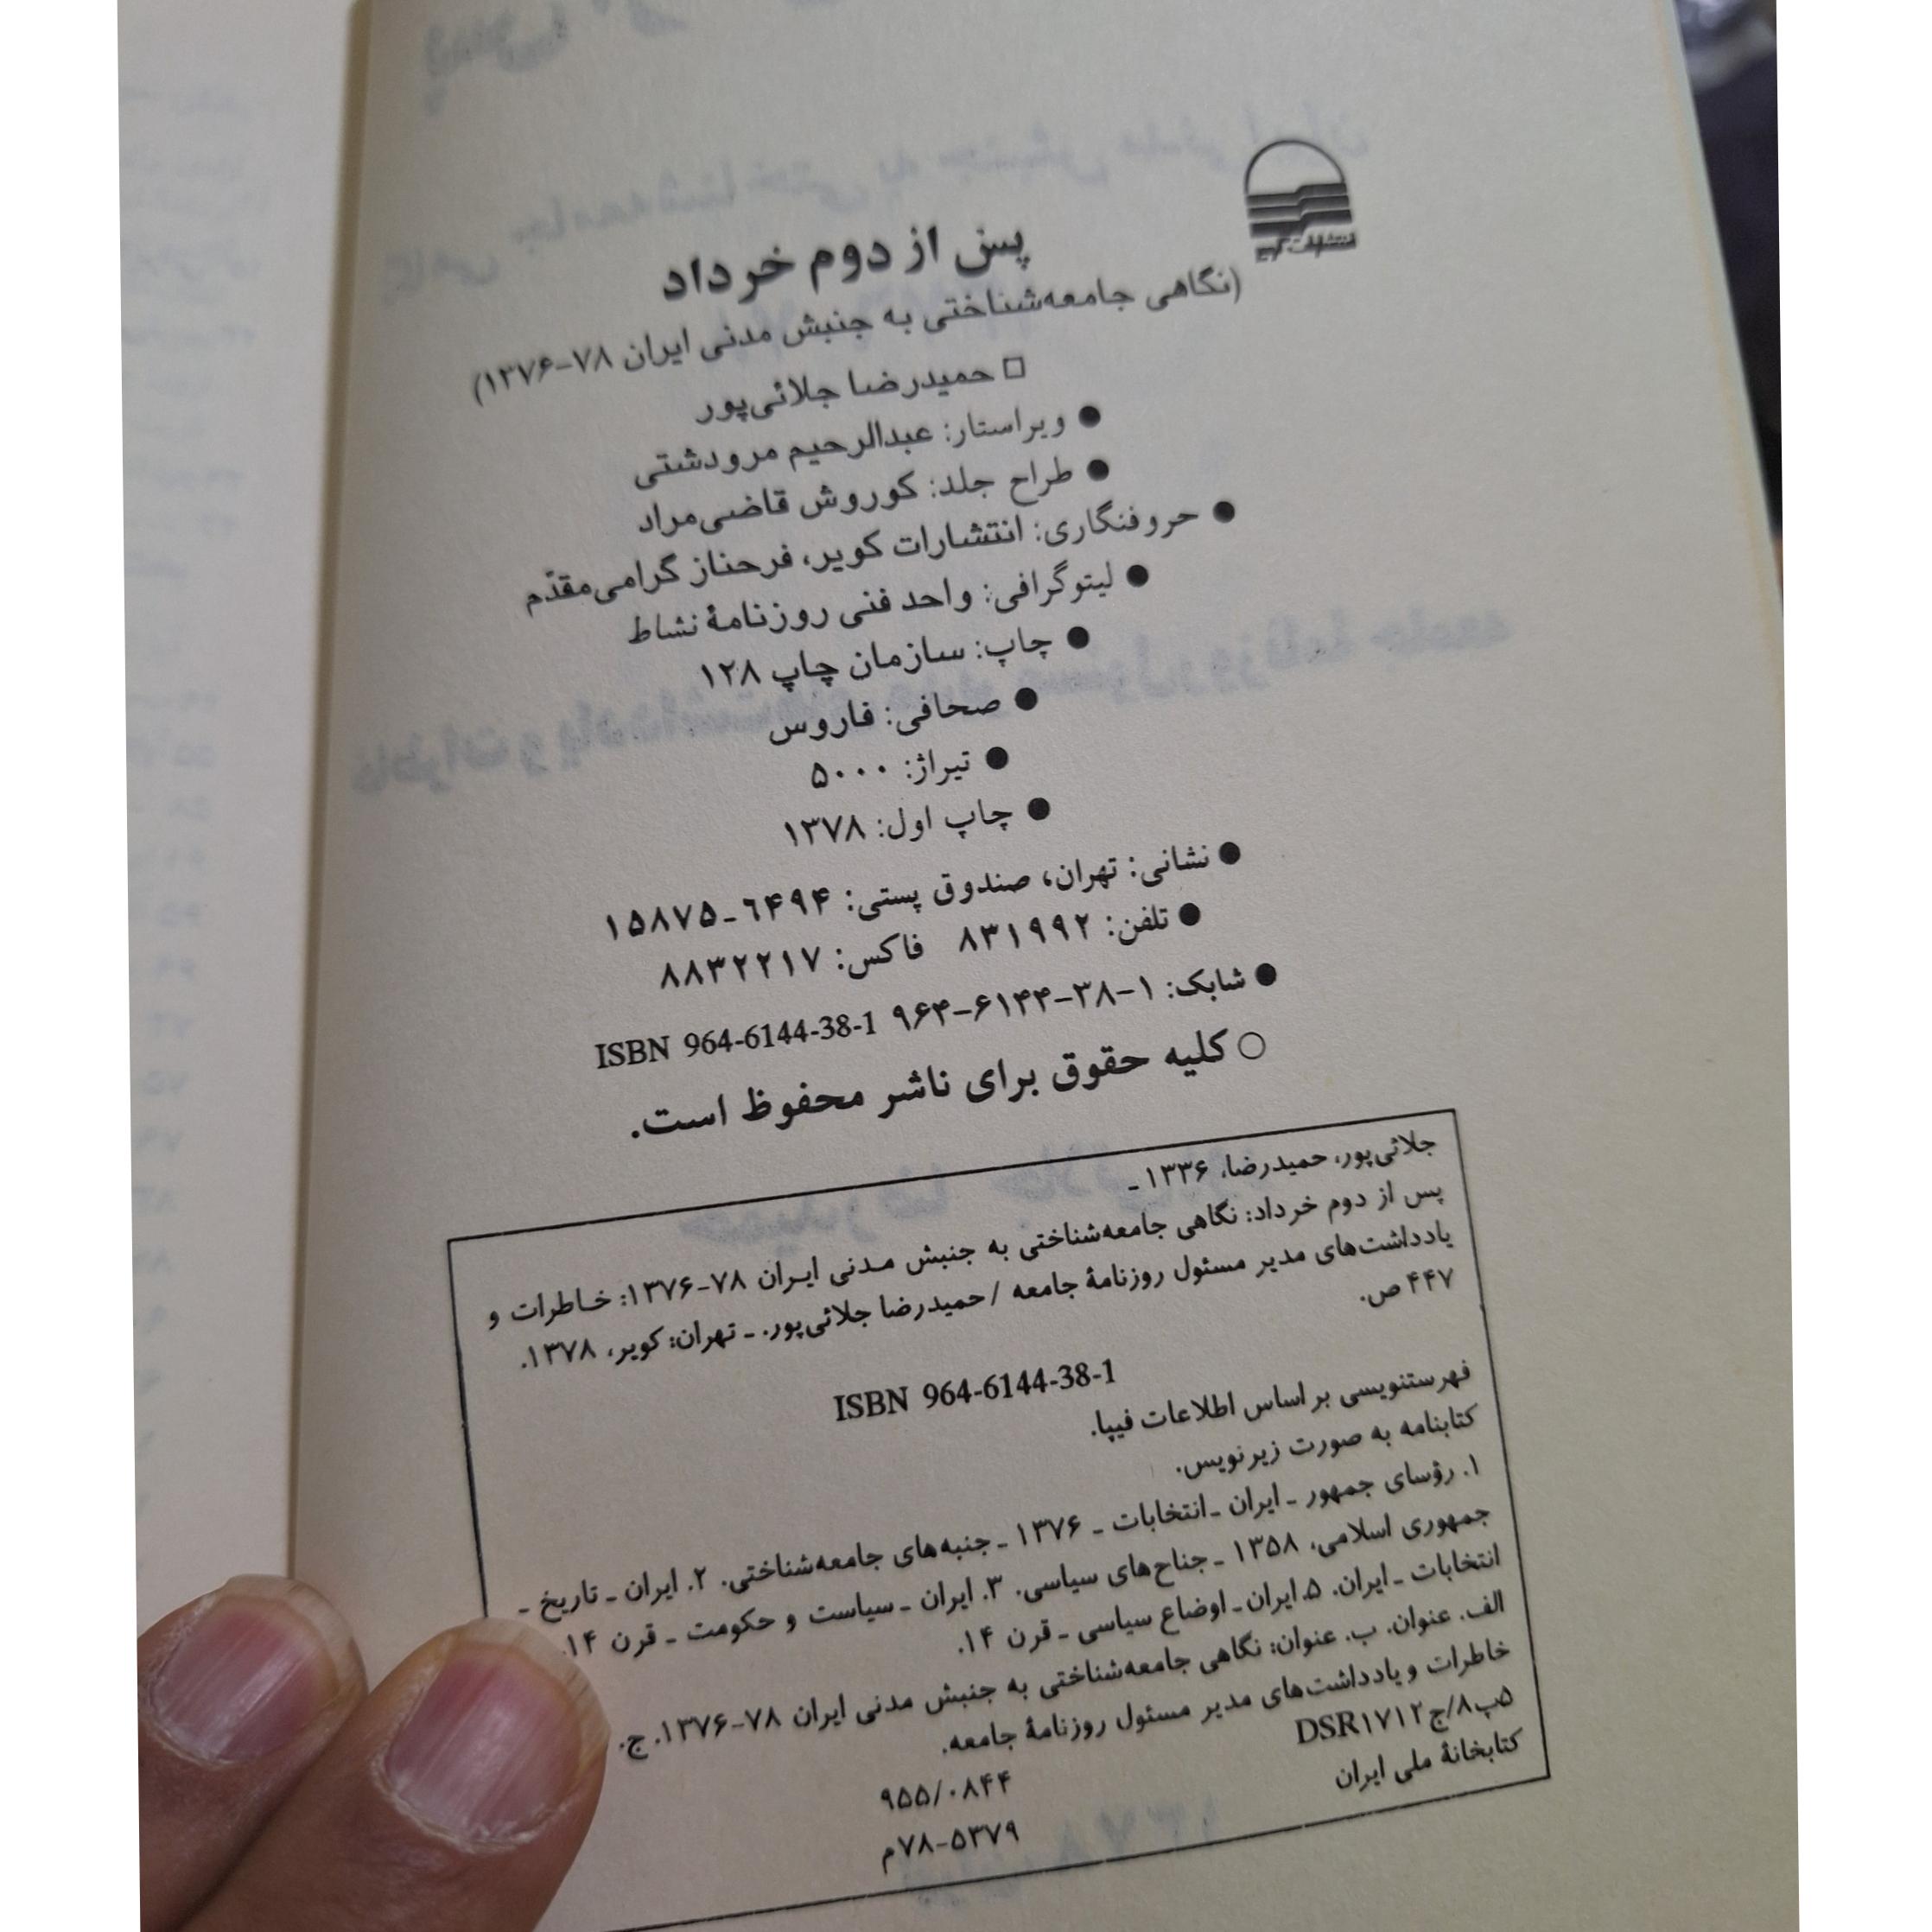 انتشارات کویر
پس از دوم خرداد
(نگاهی جامعه‌شناختی به جنبش مدنی ایران ۷۸-۱۳۷۶)
□ حمیدرضا جلائی‌پور
● ویراستار: عبدالرحیم مرودشتی
● طراح جلد: کوروش قاضی‌مراد
● حروفنگاری: انتشارات کویر، فرحناز گرامی‌مقدّم
● لیتوگرافی: واحد فنی روزنامهٔ نشاط
● چاپ: سازمان چاپ ۱۲۸
● صحافی: فاروس
● تیراژ: ۵۰۰۰
● چاپ اول: ۱۳۷۸
● نشانی: تهران، صندوق پستی: ۶۴۹۴-۱۵۸۷۵
● تلفن: ۸۳۱۹۹۲ فاکس: ۸۸۳۲۲۱۷
● شابک: ۱-۳۸-۶۱۴۴-۹۶۴ ISBN 964-6144-38-1
○ کلیه حقوق برای ناشر محفوظ است.
جلائی‌پور، حمیدرضا، ۱۳۳۶ -
پس از دوم خرداد: نگاهی جامعه‌شناختی به جنبش مدنی ایران ۷۸-۱۳۷۶: خاطرات و
یادداشت‌های مدیر مسئول روزنامهٔ جامعه / حمیدرضا جلائی‌پور. - تهران: کویر، ۱۳۷۸.
۴۴۷ ص.
ISBN 964-6144-38-1
فهرستنویسی بر اساس اطلاعات فیپا.
کتابنامه به صورت زیرنویس.
۱. رؤسای جمهور - ایران - انتخابات - ۱۳۷۶ - جنبه‌های جامعه‌شناختی. ۲. ایران - تاریخ -
جمهوری اسلامی، ۱۳۵۸ - جناح‌های سیاسی. ۳. ایران - سیاست و حکومت - قرن ۱۴.
انتخابات - ایران. ۵. ایران - اوضاع سیاسی - قرن ۱۴.
الف. عنوان. ب. عنوان: نگاهی جامعه‌شناختی به جنبش مدنی ایران ۷۸-۱۳۷۶. ج.
خاطرات و یادداشت‌های مدیر مسئول روزنامهٔ جامعه.
۵پ۸ج/DSR۱۷۱۲ ۹۵۵/۰۸۴۴
کتابخانهٔ ملی ایران ۵۳۷۹-۷۸م